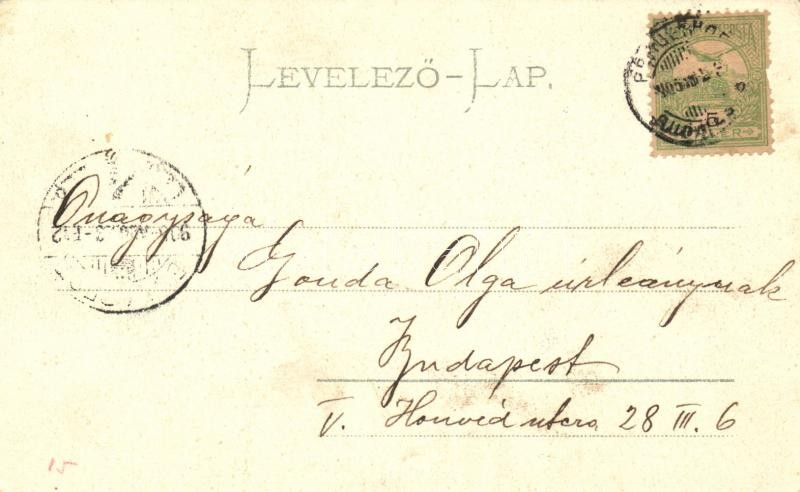 LEVELEZŐ-LAP.
Önagysága
Gonda Olga úrleánynak
Budapest
V. Honvéd utcza 28 III. 6
15